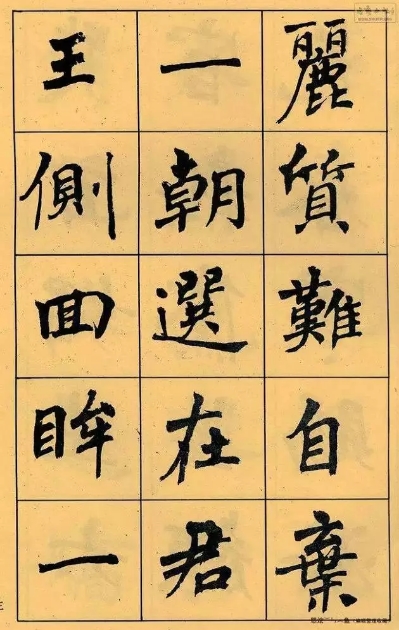 麗質難自棄
一朝選在君
王側回眸一